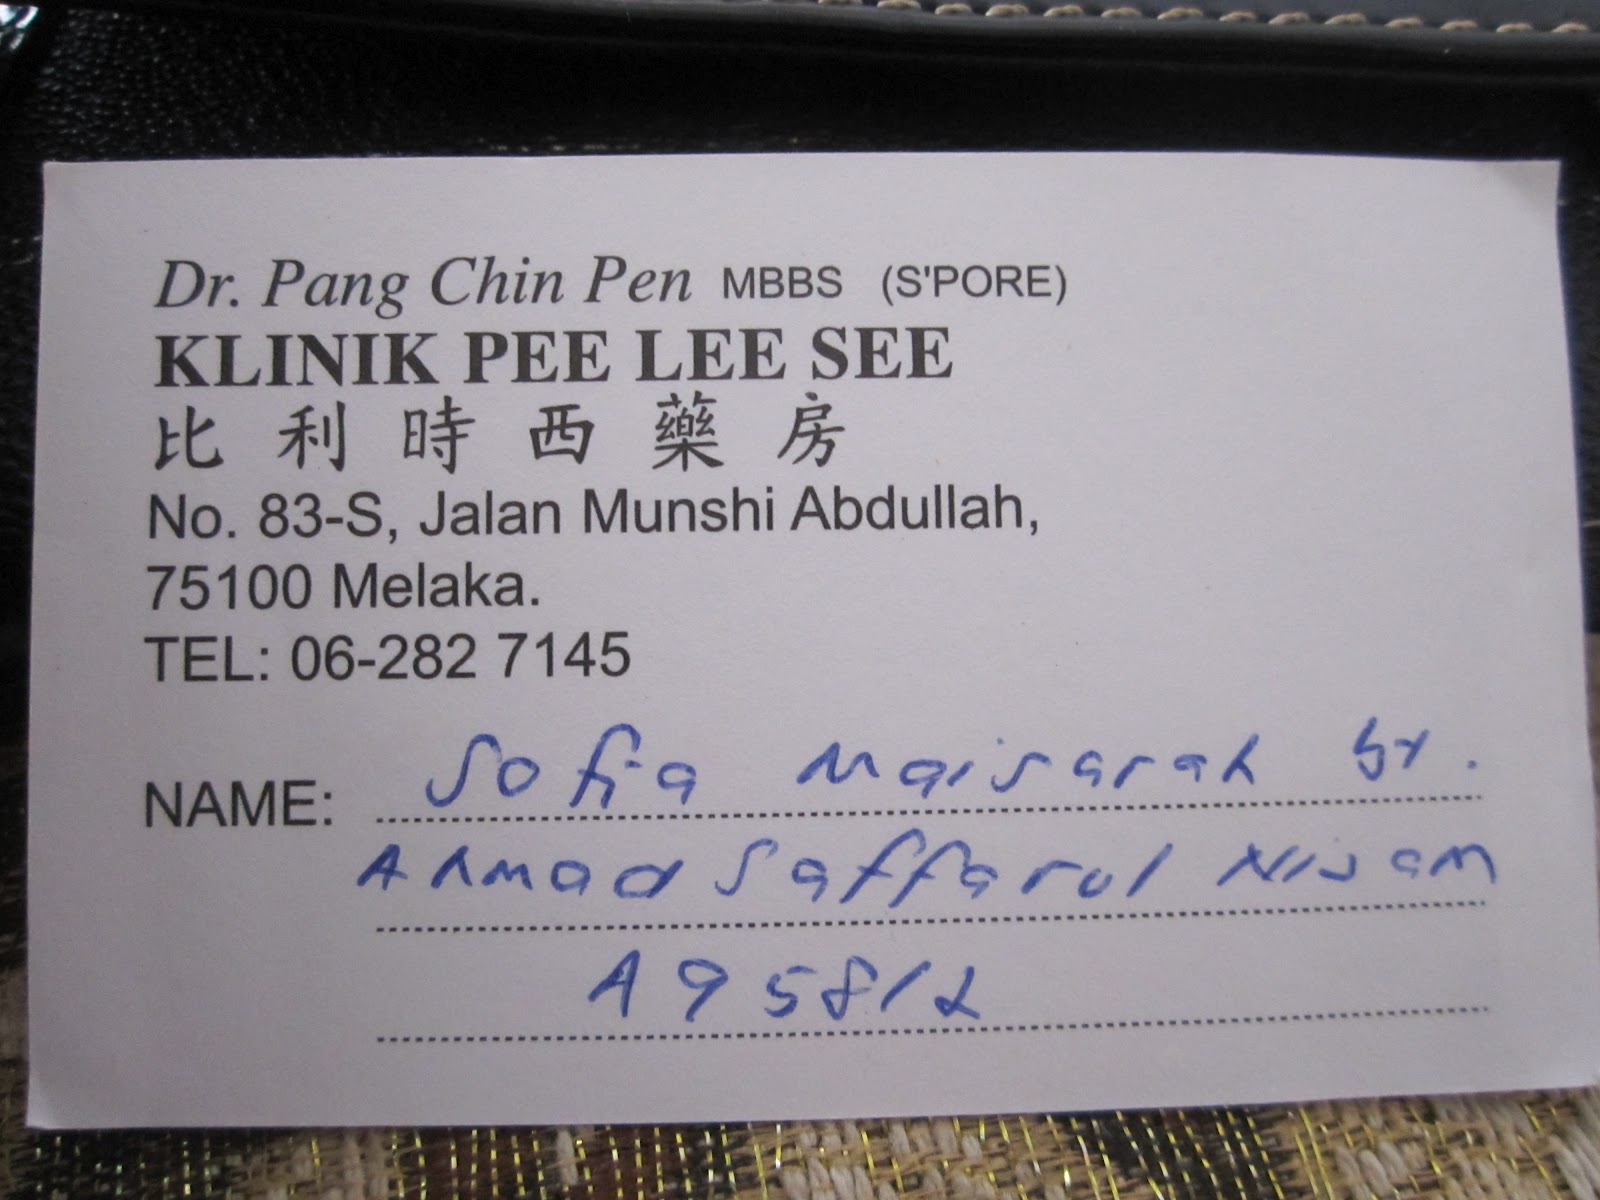 Dr. Pang Chin Pen MBBS (S'PORE)
KLINIK PEE LEE SEE
比利時西藥房
No. 83-S, Jalan Munshi Abdullah,
75100 Melaka.
TEL: 06-282 7145
NAME: Sofia Maisarah bt.
Ahmad Saffarul Nisam
A95812